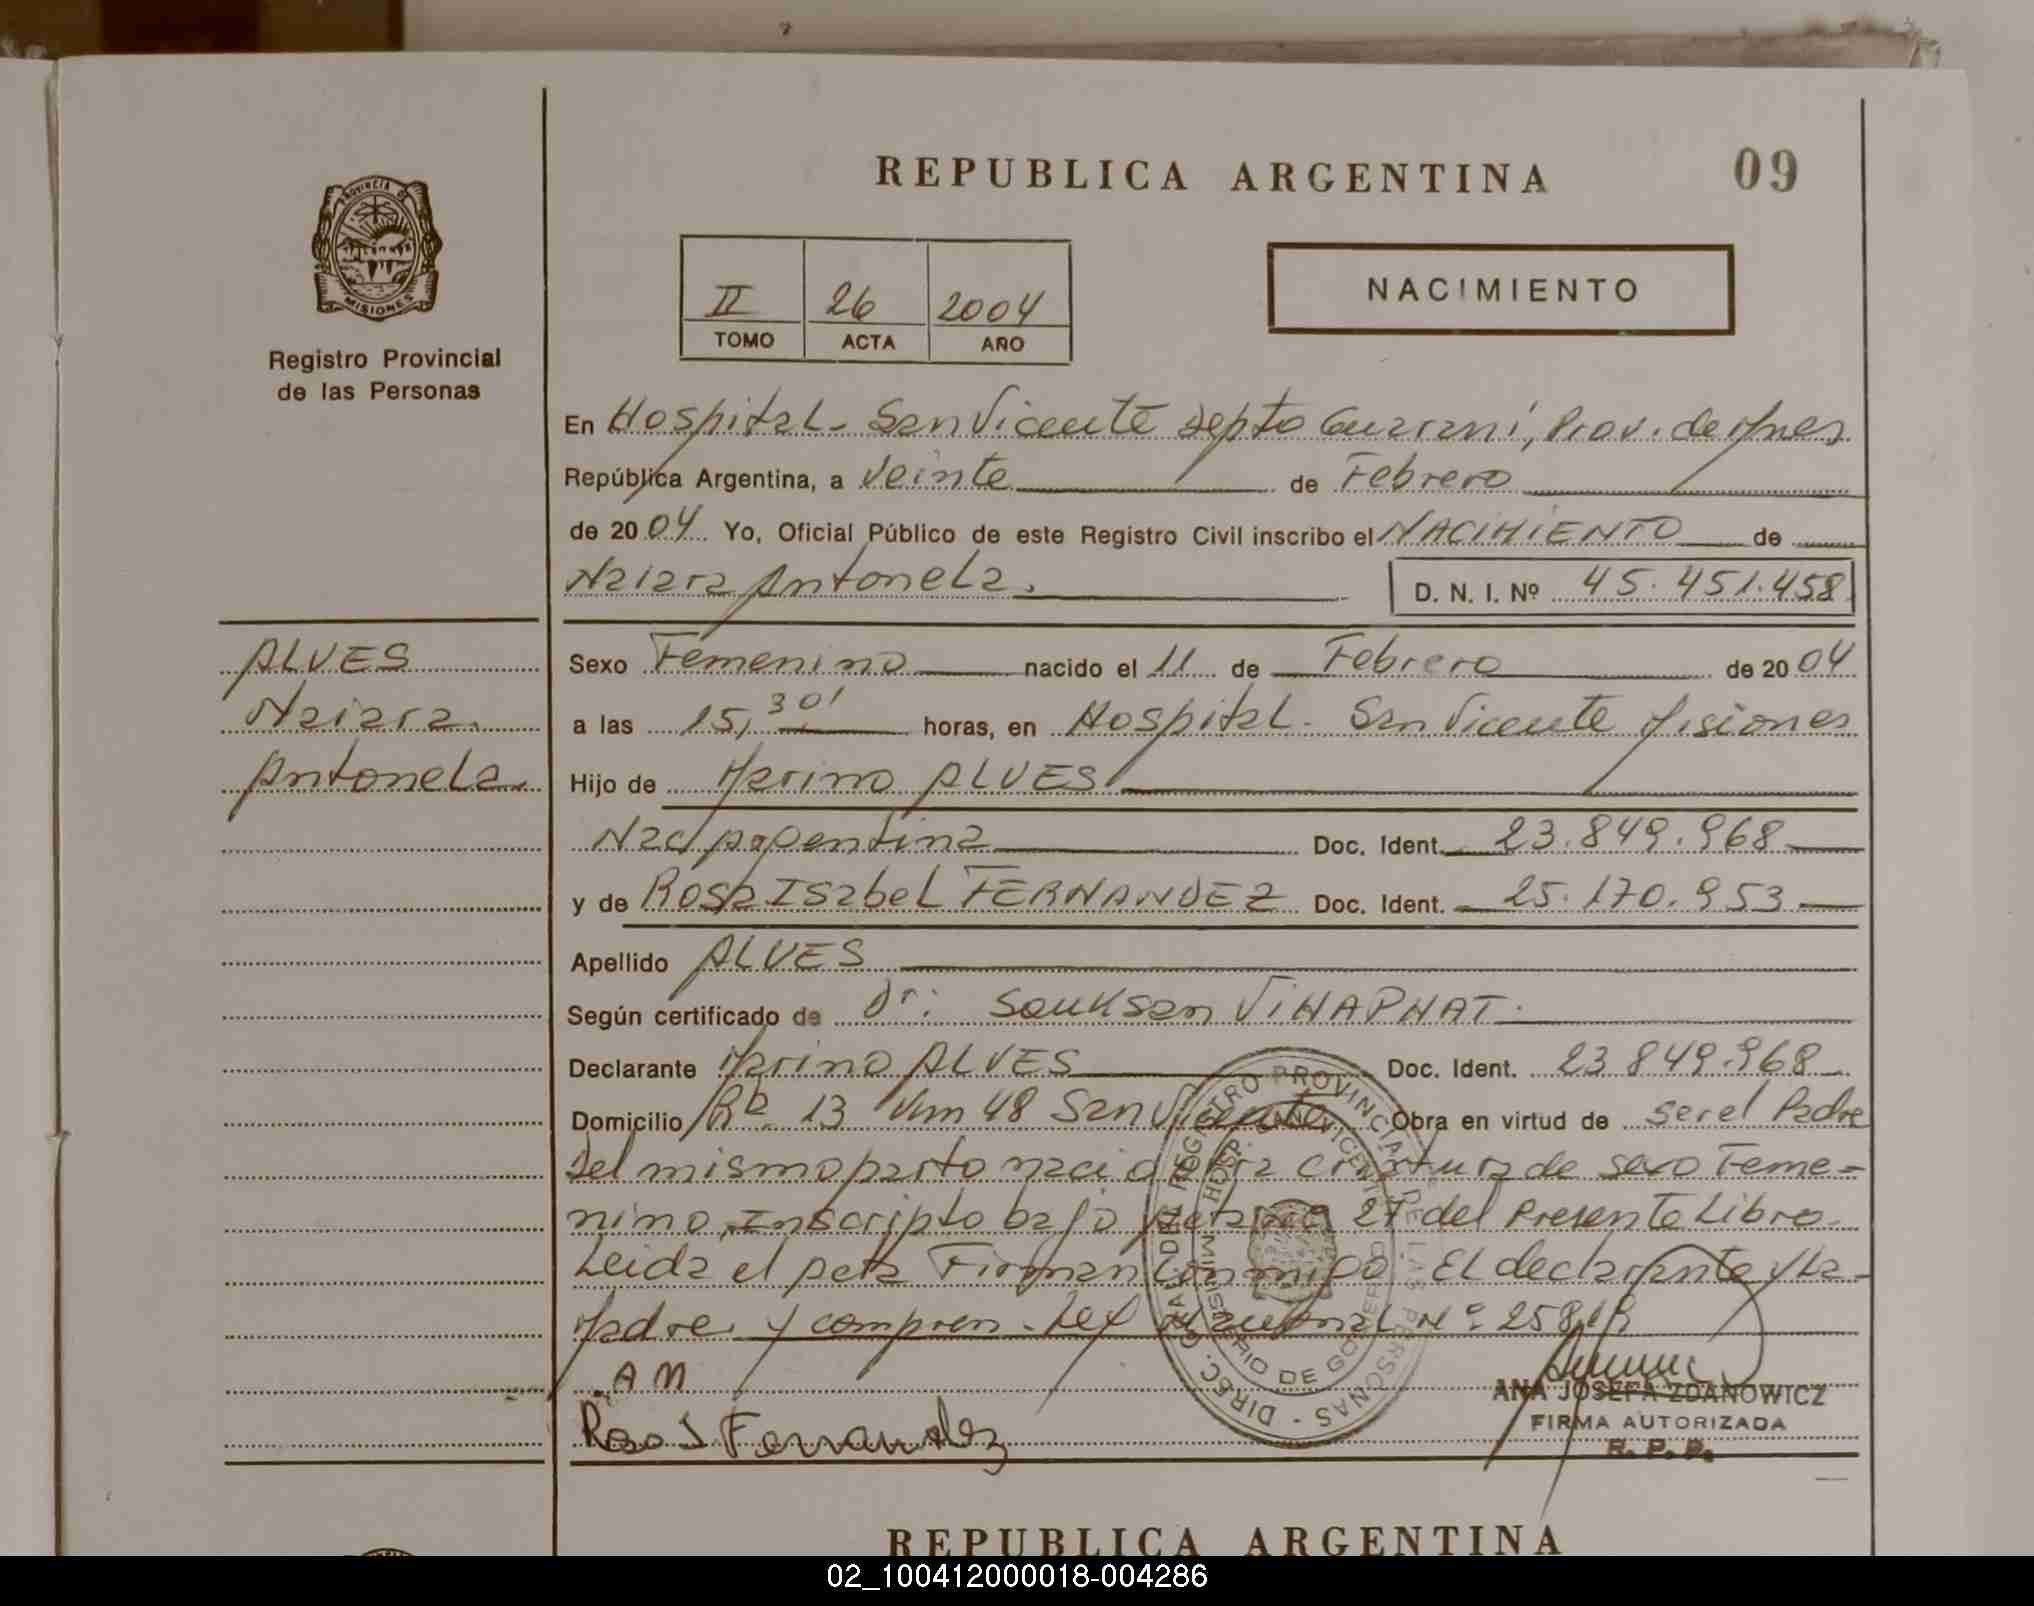 REPUBLICA ARGENTINA
09
PROVINCIA DE
MISIONES
Registro Provincial
de las Personas
II 26 2004
TOMO ACTA AÑO
NACIMIENTO
En Hospital - San Vicente Depto Guaraní, Prov. de Mnes
República Argentina, a Veinte de Febrero
de 2004 Yo, Oficial Público de este Registro Civil inscribo el NACIMIENTO de
Naiara Antonela. D. N. I. Nº 45.451.458
ALVES
Naiara
Antonela.
Sexo Femenino nacido el 11 de Febrero de 2004
a las 15,30' horas, en Hospital - San Vicente Misiones
Hijo de Marino ALVES
Nac Argentina Doc. Ident. 23.849.968
y de Rosa Isabel FERNANDEZ Doc. Ident. 25.170.953
Apellido ALVES
Según certificado de Dr: Souksan VIHAPHAT.
Declarante Marino ALVES Doc. Ident. 23 849.968
Domicilio 13 Km 48 San Vicente Obra en virtud de ser el Padre
Del mismo parto nacio otra criatura de sexo Feme=
nino, Inscripto bajo Acta 27 del Presente Libro.
Leida el Acta Firman Conmigo El declarante y La-
Madre. y compren. Ley Nacional Nº 25819
AM
Rosa I Fernandez
DIREC. GRAL DEL REGISTRO PROVINCIAL DE LAS PERSONAS
HOSP. SAN VICENTE
MINISTERIO DE GOBIERNO
ANA JOSEFA ZDANOWICZ
FIRMA AUTORIZADA
R. P. P.
REPUBLICA ARGENTINA
02_100412000018-004286